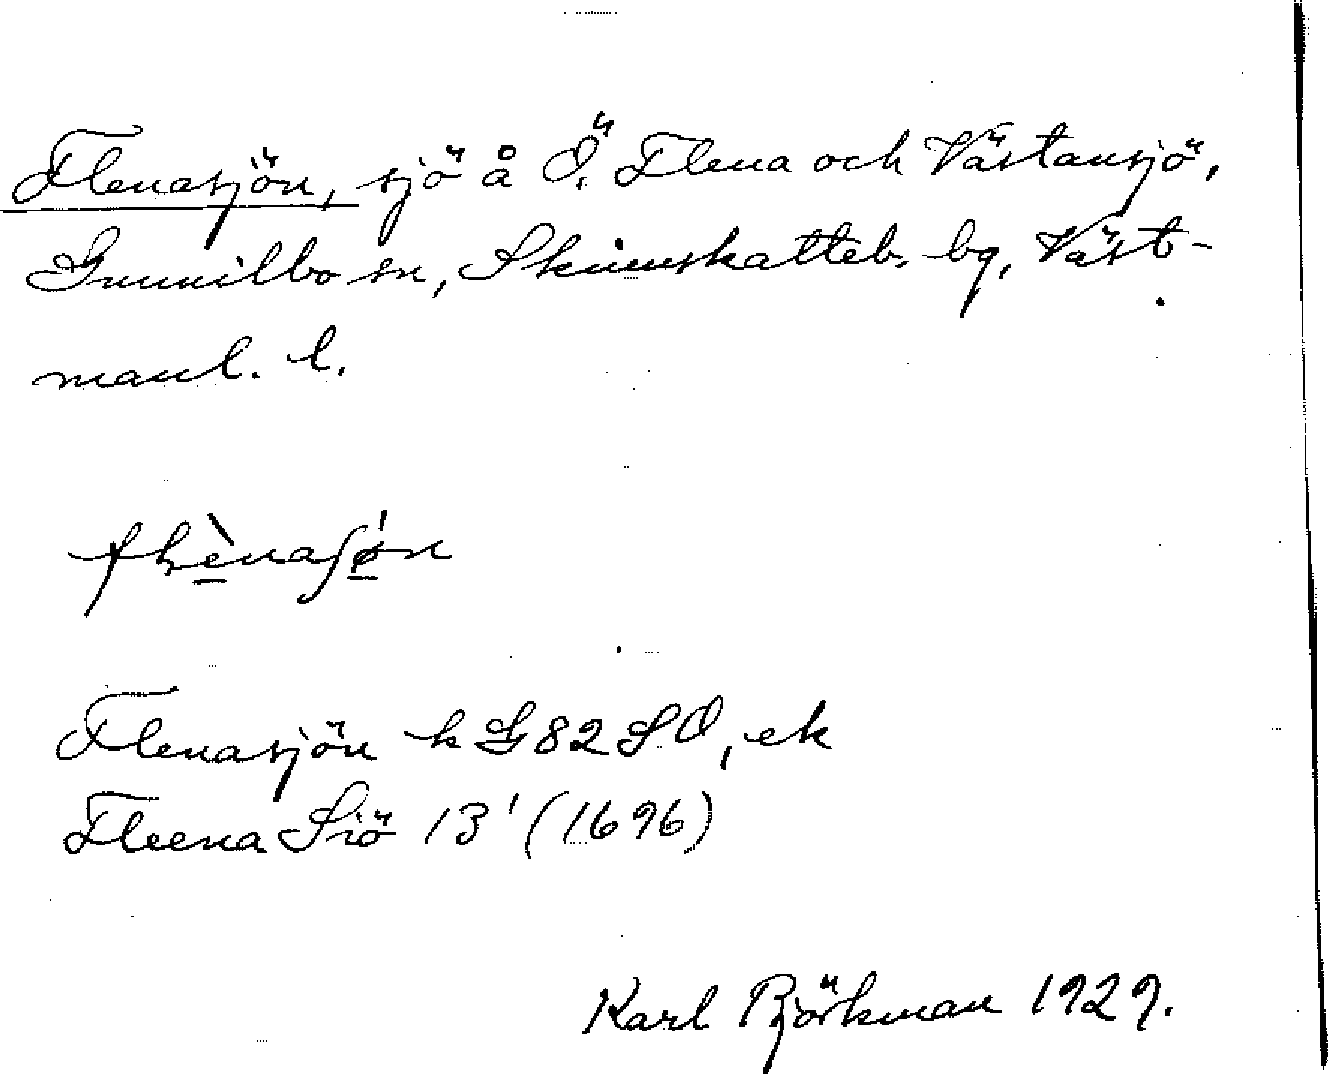 Flenasjön, sjö å Ö. Flena och Västansjö,
Gunnilbo sn, Skinnskatteb. bg, Väst-
manl. l.
Flenasjön k G 82 SO, ek
Fleena Siö 13' (1696)
Karl Björkman 1929.